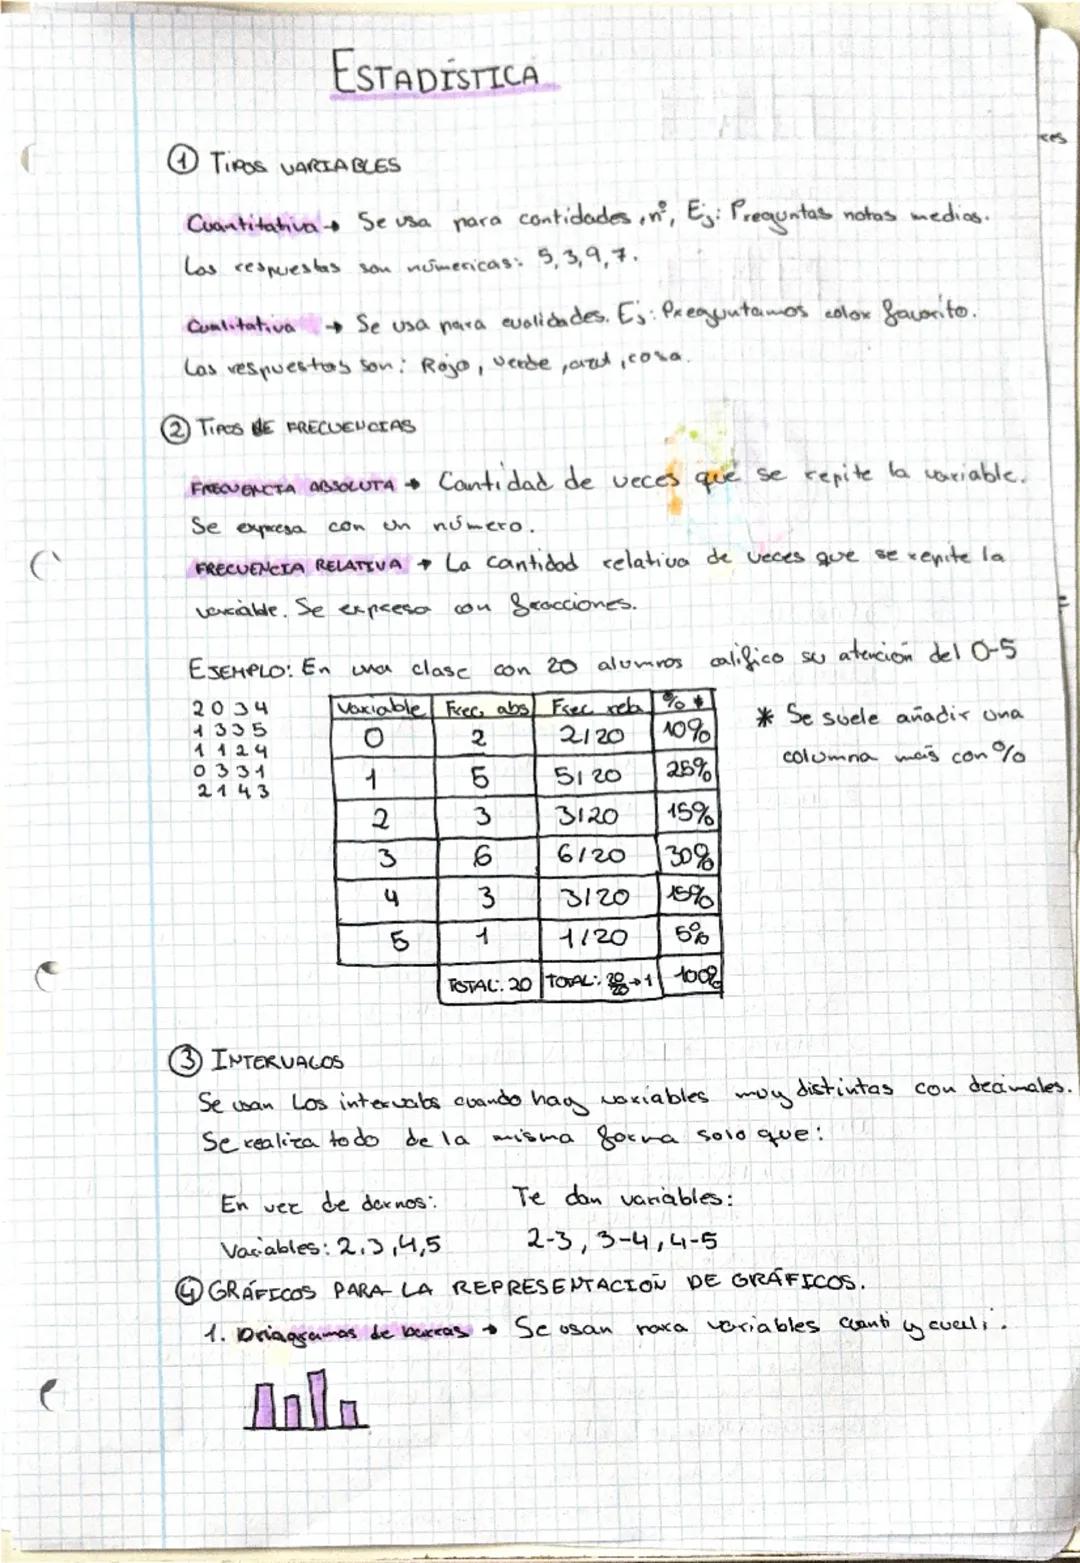 ESTADÍSTICA
ces
① TIPOS VARIABLES
Cuantitativa → Se usa para cantidades, nº, Ej: Preguntas notas medias.
Las respuestas son númericas: 5,3,9,7.
Cualitativa → Se usa para cualidades. Ej: Preguntamos color favorito.
Las respuestas son: Rojo, verde, azul, rosa.
② TIPOS DE FRECUENCIAS
FRECUENCIA ABSOLUTA → Cantidad de veces que se repite la variable.
Se expresa con un número.
FRECUENCIA RELATIVA → La cantidad relativa de veces que se repite la
variable. Se expresa con fracciones.
EJEMPLO: En una clase con 20 alumnos califico su atención del 0-5
2 0 3 4
1 3 3 5
1 1 2 4
0 3 3 1
2 1 4 3
Variable Frec. abs Frec rela % *
0 2 2/20 10%
1 5 5/20 25%
2 3 3/20 15%
3 6 6/20 30%
4 3 3/20 15%
5 1 1/20 5%
TOTAL: 20 TOTAL: 20/20 → 1 100%
* Se suele añadir una
columna más con %
③ INTERVALOS
Se usan los intervalos cuando hay variables muy distintas con decimales.
Se realiza todo de la misma forma solo que:
En vez de darnos: Te dan variables:
Variables: 2,3,4,5 2-3, 3-4, 4-5
④ GRÁFICOS PARA LA REPRESENTACIÓN DE GRÁFICOS.
1. Driagramas de barras → Se usan para variables cuanti y cuali.